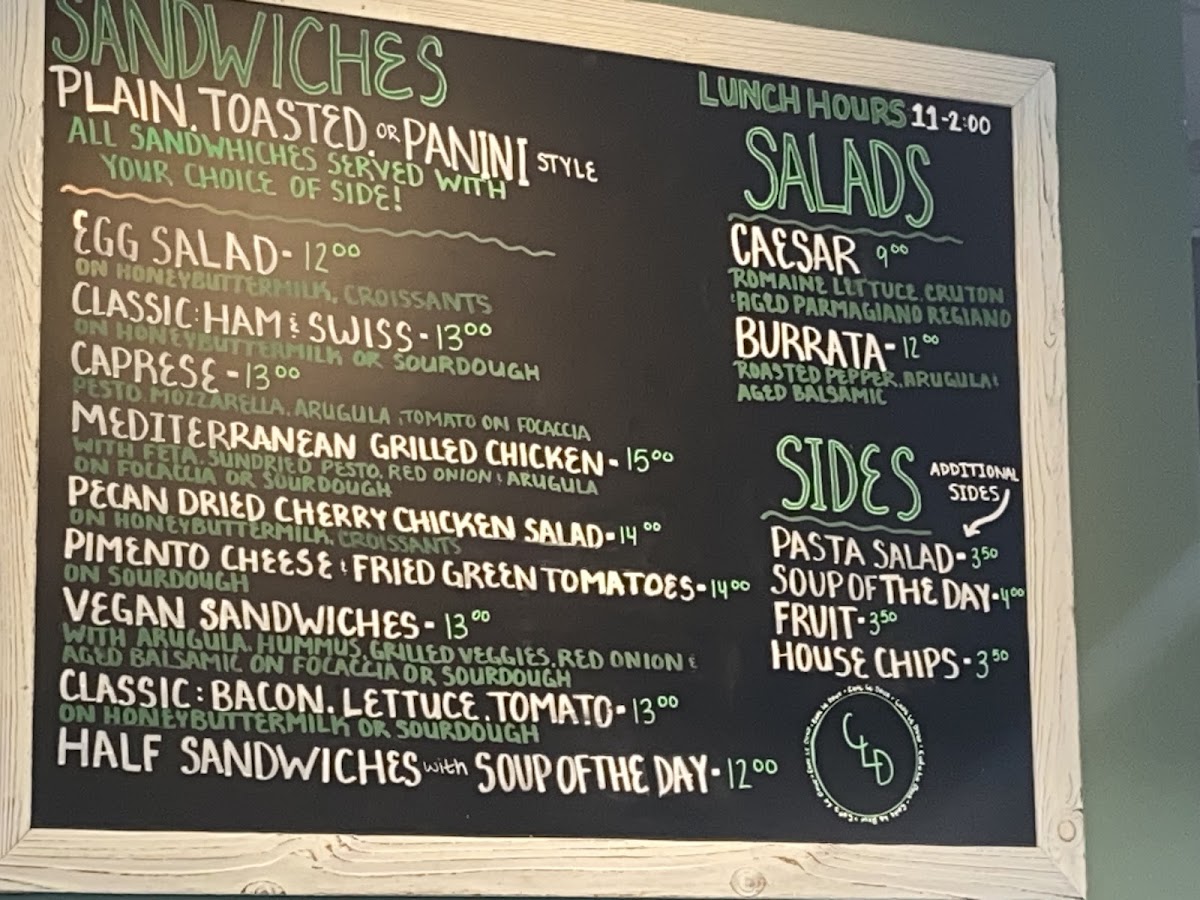 SANDWICHES
PLAIN, TOASTED, OR PANINI STYLE
ALL SANDWHICHES SERVED WITH
YOUR CHOICE OF SIDE!
EGG SALAD - 12⁰⁰
ON HONEYBUTTERMILK, CROISSANTS
CLASSIC: HAM & SWISS - 13⁰⁰
ON HONEYBUTTERMILK OR SOURDOUGH
CAPRESE - 13⁰⁰
PESTO, MOZZARELLA, ARUGULA, TOMATO ON FOCACCIA
MEDITERRANEAN GRILLED CHICKEN - 15⁰⁰
WITH FETA, SUNDRIED PESTO, RED ONION & ARUGULA
ON FOCACCIA OR SOURDOUGH
PECAN DRIED CHERRY CHICKEN SALAD - 14⁰⁰
ON HONEYBUTTERMILK, CROISSANTS
PIMENTO CHEESE & FRIED GREEN TOMATOES - 14⁰⁰
ON SOURDOUGH
VEGAN SANDWICHES - 13⁰⁰
WITH ARUGULA, HUMMUS, GRILLED VEGGIES, RED ONION &
AGED BALSAMIC ON FOCACCIA OR SOURDOUGH
CLASSIC: BACON, LETTUCE, TOMATO - 13⁰⁰
ON HONEYBUTTERMILK OR SOURDOUGH
HALF SANDWICHES with SOUP OF THE DAY - 12⁰⁰
LUNCH HOURS 11-2:00
SALADS
CAESAR 9⁰⁰
ROMAINE LETTUCE, CRUTON
& AGED PARMAGIANO REGIANO
BURRATA - 12⁰⁰
ROASTED PEPPER, ARUGULA &
AGED BALSAMIC
SIDES
ADDITIONAL
SIDES
PASTA SALAD - 3⁵⁰
SOUP OF THE DAY - 4⁰⁰
FRUIT - 3⁵⁰
HOUSE CHIPS - 3⁵⁰
CLD